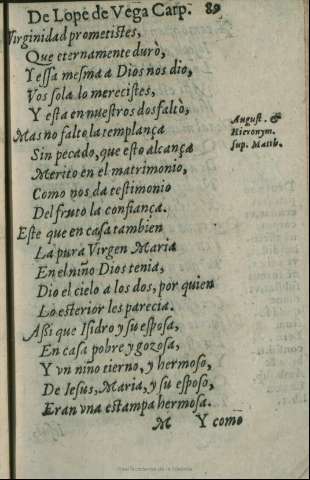 De Lope de Vega Carp. 89
Virginidad prometistes,
Que eternamente durò,
Y essa mesma a Dios nos dio,
Vos sola lo merecistes,
Y esta en nuestros dos faltò,
Mas no faltò la templança
August. &
Hieronym.
sup. Matth.
Sin pecado, que esto alcança
Merito en el matrimonio,
Como nos da testimonio
Del fruto la confiança.
Este que en casa tambien
La pura Virgen Maria
En el niño Dios tenia,
Dio el cielo a los dos, por quien
Lo esterior les parecia.
Assi que Isidro y su esposa,
En casa pobre y gozosa,
Y vn niño tierno, y hermoso,
De Iesus, Maria, y su esposo,
Eran vna estampa hermosa.
M Y como